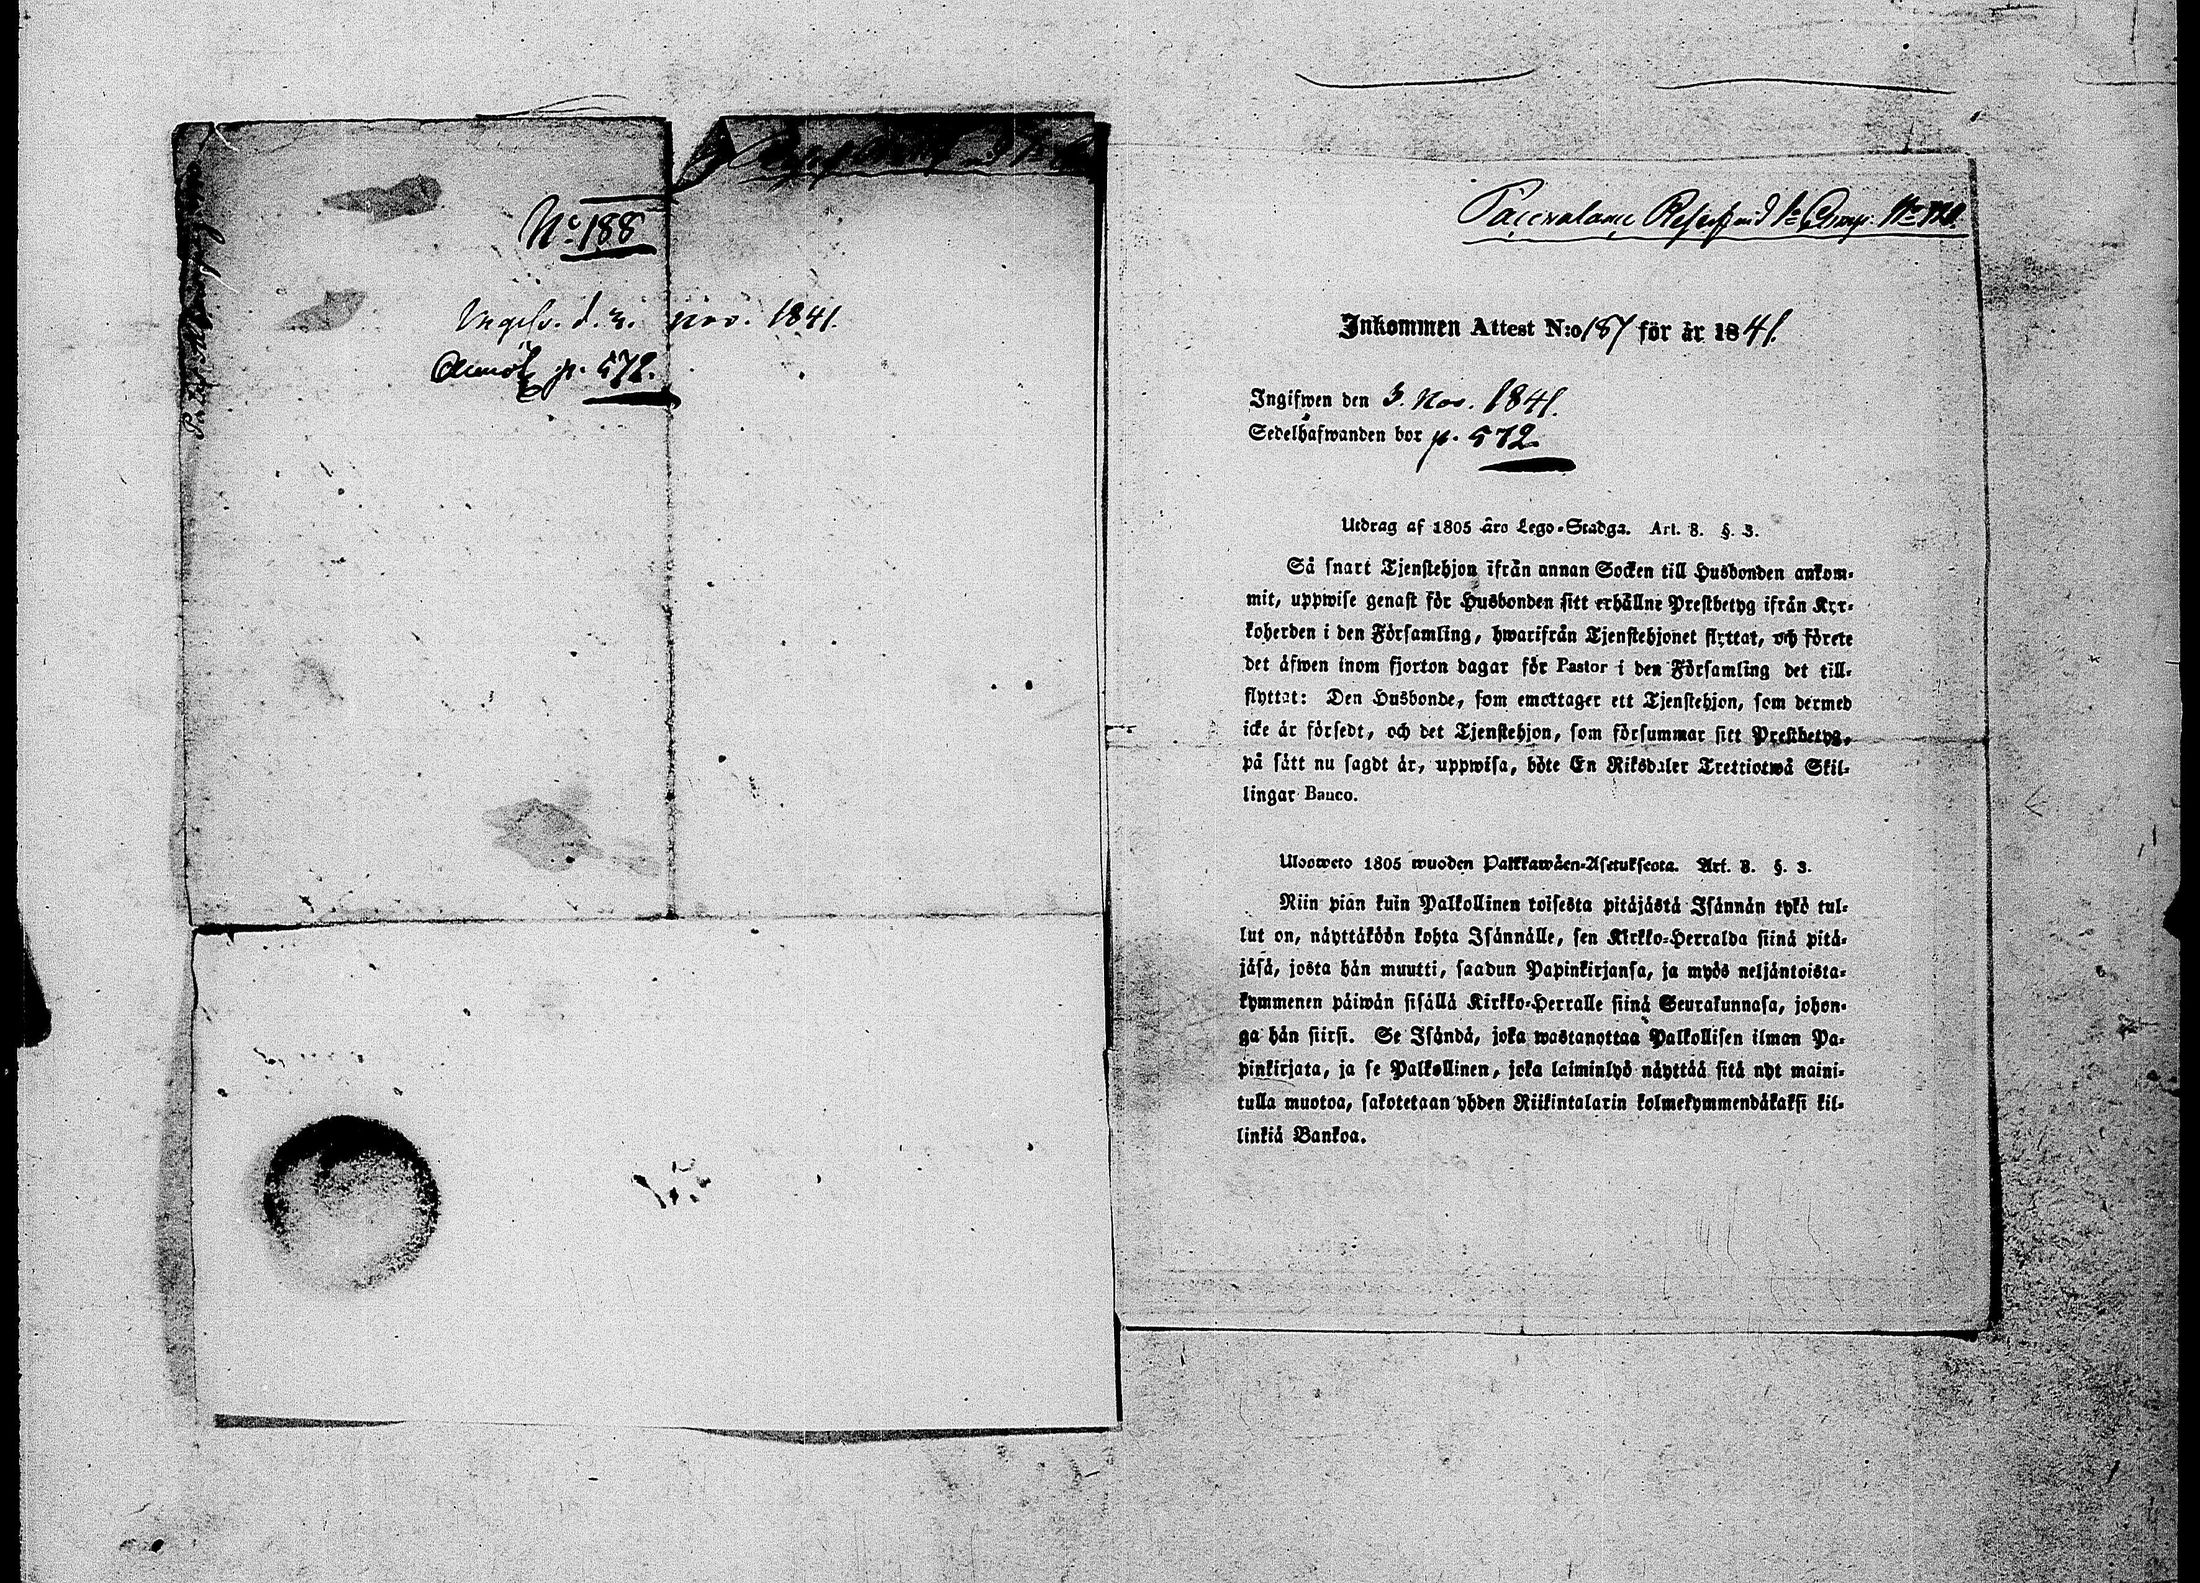 No 188
Ingifv. d. 3. nov. 1841.
p. 572.
Inkommen Attest N:o 187 för år 1841.
Ingifwen den 3. Nov. 1841.
Sedelhafwanden bor p. 572
Utdrag af 1805 åro Lego-Stadga. Art. 8. §. 3.
Så snart Tjenstehjon ifrån annan Socken till Husbonden ankom-
mit, uppwise genast för Husbonden sitt erhållne Prestbetyg ifrån Kyr-
koherden i den Församling, hwarifrån Tjenstehjonet flyttat, och förete
det äfwen inom fjorton dagar för Pastor i den Församling det till-
flyttat: Den Husbonde, som emottager ett Tjenstehjon, som dermed
icke är försedt, och det Tjenstehjon, som försummar sitt Prestbetyg,
på sätt nu sagdt är, uppwisa, böte En Riksdaler Trettiotwå Skil-
lingar Banco.
Ulosweto 1805 wuoden Palkkawäen-Asetuksesta. Art. 8. §. 3.
Niin pian kuin Palkollinen toisesta pitäjästä Isännän tykö tul-
lut on, näyttäköön kohta Isännälle, sen Kirkko-Herralda siinä pitä-
jäsä, josta hän muutti, saadun Papinkirjansa, ja myös neljäntoista-
kymmenen päiwän sisällä Kirkko-Herralle siinä Seurakunnasa, johon-
ga hän siirsi. Se Isändä, joka wastanottaa Palkollisen ilman Pa-
pinkirjata, ja se Palkollinen, joka laiminlyö näyttää sitä nyt maini-
tulla muotoa, sakotetaan yhden Riikintalarin kolmekymmendäkaksi kil-
linkiä Bankoa.